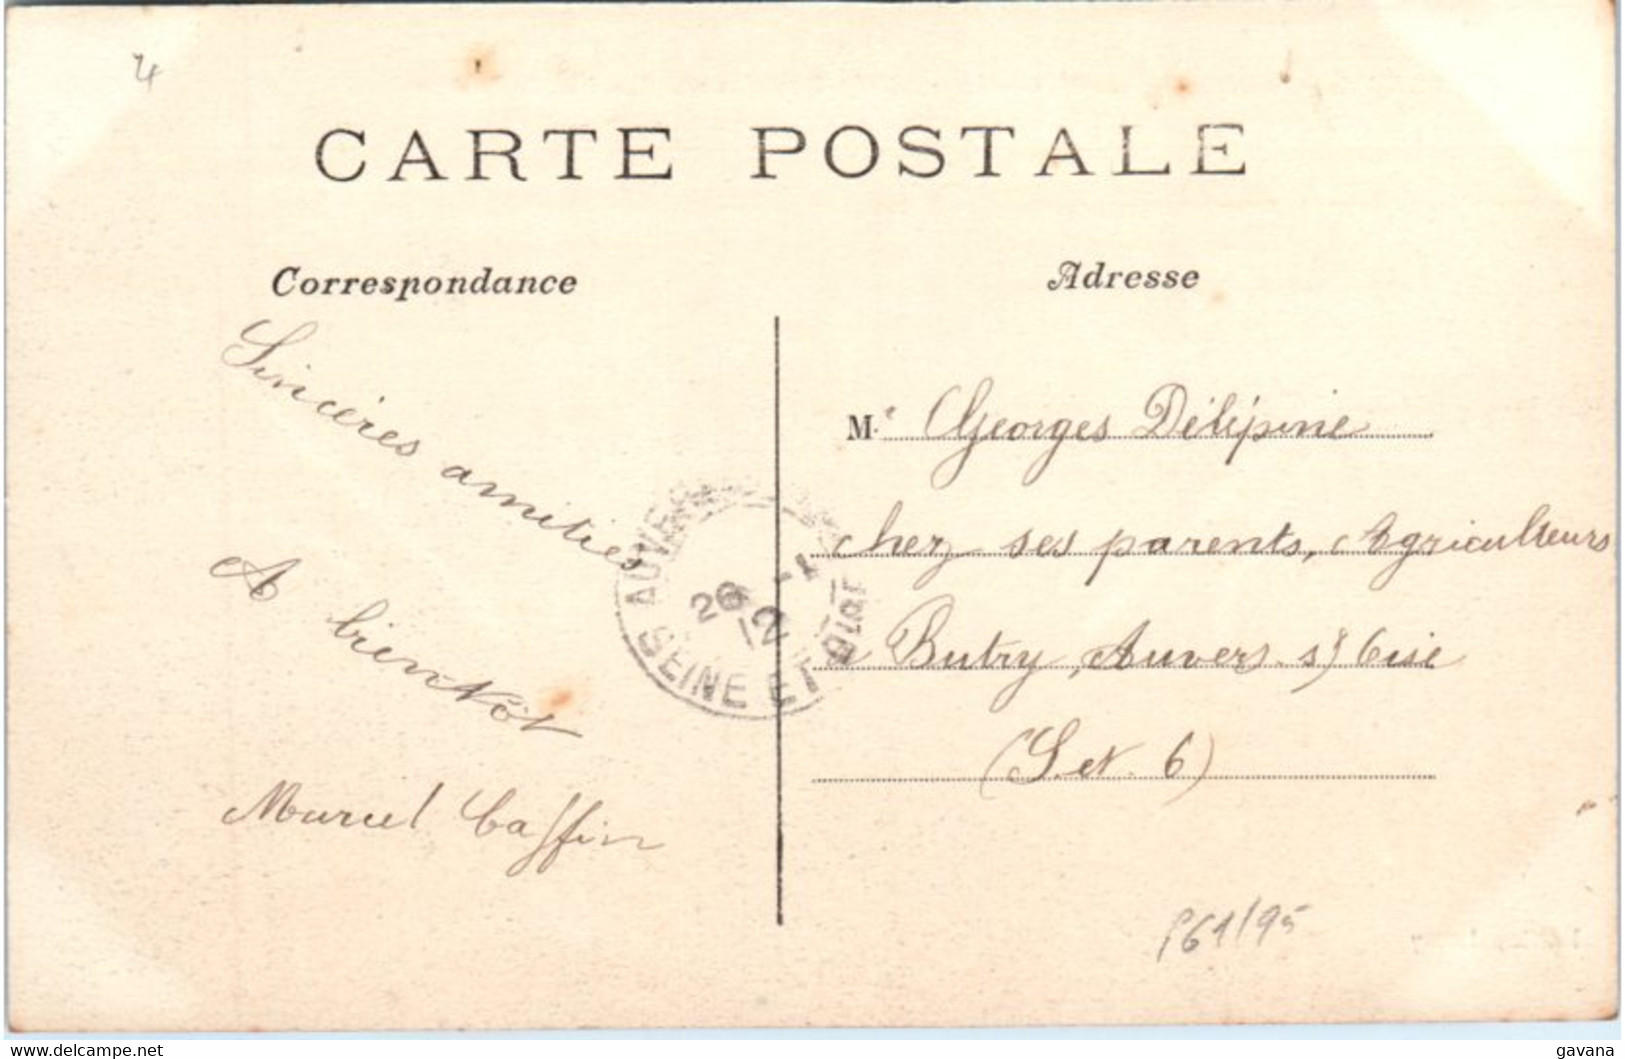 4
CARTE POSTALE
Correspondance
Adresse
Sincères amitiés
A bientôt
Marcel Caffin
M.r Georges Délépine
chez ses parents, Agriculteurs
à Butry, Auvers s/ Oise
(S. et. O)
AUVERS
26 -1
12
SEINE ET OISE
P61/95
www.delcampe.net
gavana